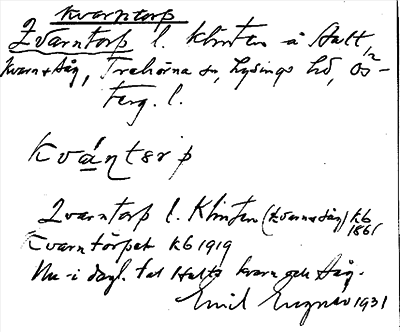 Kvarntorp
Qvarntorp l. Klinten å Halt,
Kvarn & såg, Trehörna sn, Lysings hd, Ös-
terg. l.
Kvánterp
Qvarntorp l. Klinten (Kvarn & såg) kb 1865
Kvarntorpet kb 1919
Nu i dagl. tal Halts kvarn och såg.
Emil 1931